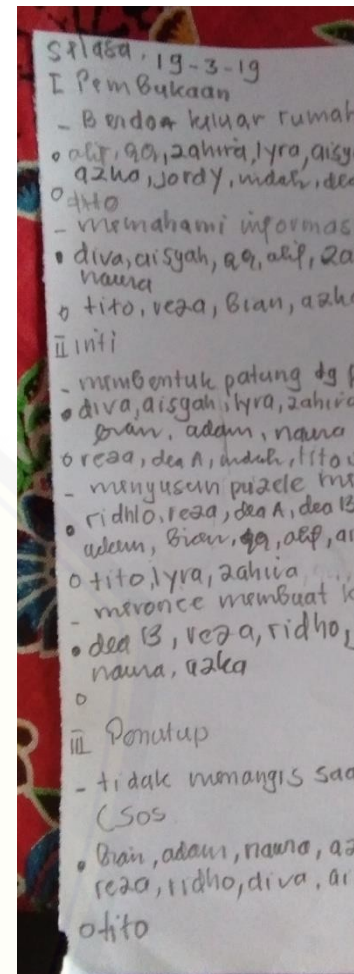 Selasa. 19-3-19
I Pembukaan
- Berdoa keluar rumah
• alif, qq, zahira, lyra, aisy
azka, Jordy, indah, dea
o tito
- memahami informas
• diva, aisyah, qq, alif, za
naura
o tito, reza, Bian, azka
II inti
- membentuk patung dg p
• diva, aisyah, lyra, zahira
Brian, adam, naura
o reza, dea A, indah, tito
- menyusun puzzle me
• ridhlo, reza, dea A, dea B
adam, Bian, qq, alif, ai
o tito, lyra, zahira
- meronce membuat k
• dea B, reza, ridho,
naura, azka
o
III Penutup
- tidak menangis saa
(sos
• Brian, adam, naura, az
reza, ridho, diva, ai
o tito